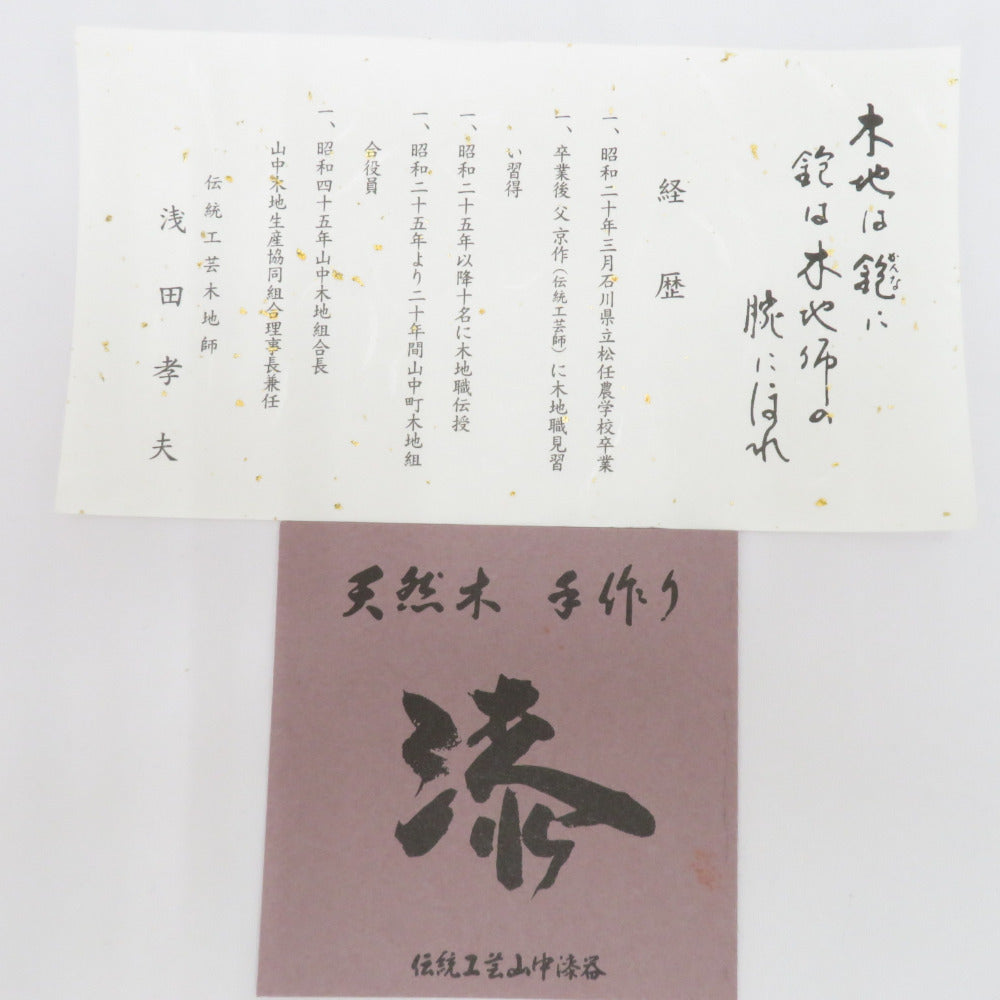 木地は鉋に
かんな
鉋は木地師の
腕にほれ
経歴
一、昭和二十年三月石川県立松任農学校卒業
一、卒業後父京作（伝統工芸師）に木地職見習
い習得
一、昭和二十五年以降十名に木地職伝授
一、昭和二十五年より二十年間山中町木地組
合役員
一、昭和四十五年山中木地組合長
山中木地生産協同組合理事長兼任
伝統工芸木地師
浅田孝夫
天然木 手作り
漆
伝統工芸山中漆器